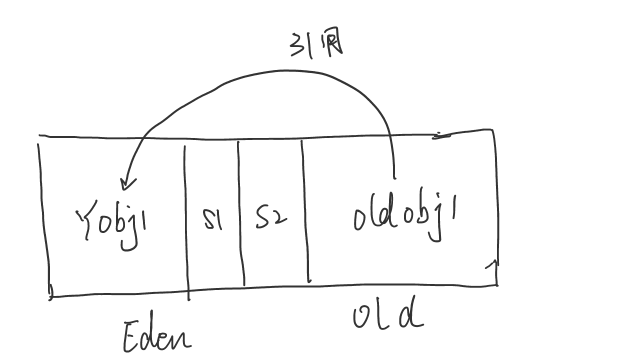 引用
Yobj1
S1
S2
oldobj1
Eden
old